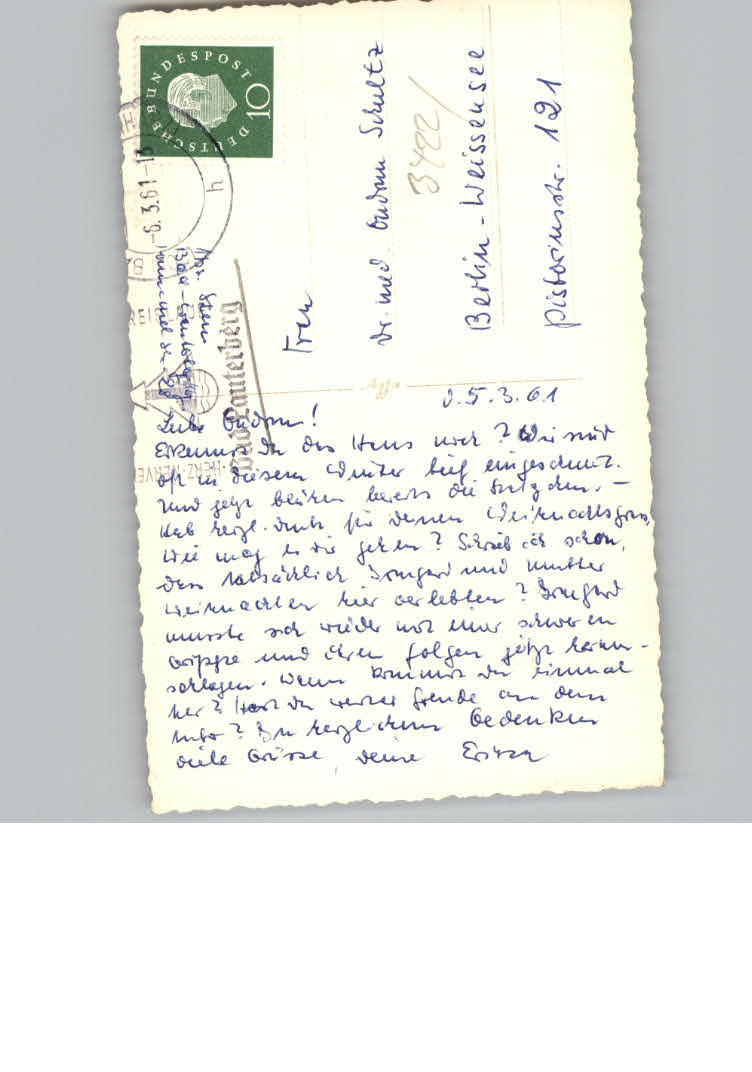 DEUTSCHE BUNDESPOST
10
-6.3.61-18
h
Bad Lauterberg
HERZ-NERVEN
Abs. Stern
Bad-Lauterberg
Frau
Dr. med. Gudrun Schultz
3422/
Berlin-Weissensee
Pistoriusstr. 121
Agfa
d. 5.3.61
Liebe Gudrun!
Erkennst Du das Haus noch? Wir sind
oft in diesem Winter tief eingeschneit.
Und jetzt blühen bereits die
Hab herzl. Dank für deinen Weihnachtsgruss,
Wie mag es dir gehen? Schrieb ich schon,
dass tatsächlich Irmgard und Mutter
Weihnachten hier verlebten? Irmgard
musste sich wieder mit einer schweren
Grippe und ihren Folgen jetzt herum-
schlagen. Wann kommst du einmal
her? Hast du weiter Freude an dem
In herzlichem Gedenken
viele Grüsse, deine Erika